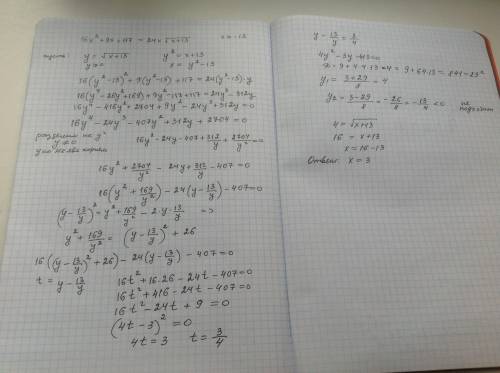 16x² + 9x + 117 = 24x √x+13    x ≥ -13
пусть: y = √x+13    y² = x+13
y ≥ 0    x = y² - 13
16(y² - 13)² + 9(y² - 13) + 117 = 24(y² - 13)·y
16(y⁴ - 26y² + 169) + 9y² - 117 + 117 = 24y³ - 312y
16y⁴ - 416y² + 2704 + 9y² - 24y³ + 312y = 0
16y⁴ - 24y³ - 407y² + 312y + 2704 = 0
разделим на y²
y ≠ 0    16y² - 24y - 407 + 312/y + 2704/y² = 0
y=0 не явл корнем
16y² + 2704/y² - 24y + 312/y - 407 = 0
16(y² + 169/y²) - 24(y - 13/y) - 407 = 0
(y - 13/y)² = y² + 169/y² - 2·y·13/y =>
y² + 169/y² = (y - 13/y)² + 26
16((y - 13/y)² + 26) - 24(y - 13/y) - 407 = 0
t = y - 13/y    16t² + 16·26 - 24t - 407 = 0
16t² + 416 - 24t - 407 = 0
16t² - 24t + 9 = 0
(4t - 3)² = 0
4t = 3    t = 3/4
y - 13/y = 3/4
4y² - 3y - 4·13 = 0
D = 9 + 4·4·13·4 = 9 + 64·13 = 841 = 29²
y₁ = 3+29/8 = 4
y₂ = 3-29/8 = -26/8 = -13/4 < 0    не подходит
4 = √x+13
16 = x+13
x = 16 - 13
Ответ: x = 3